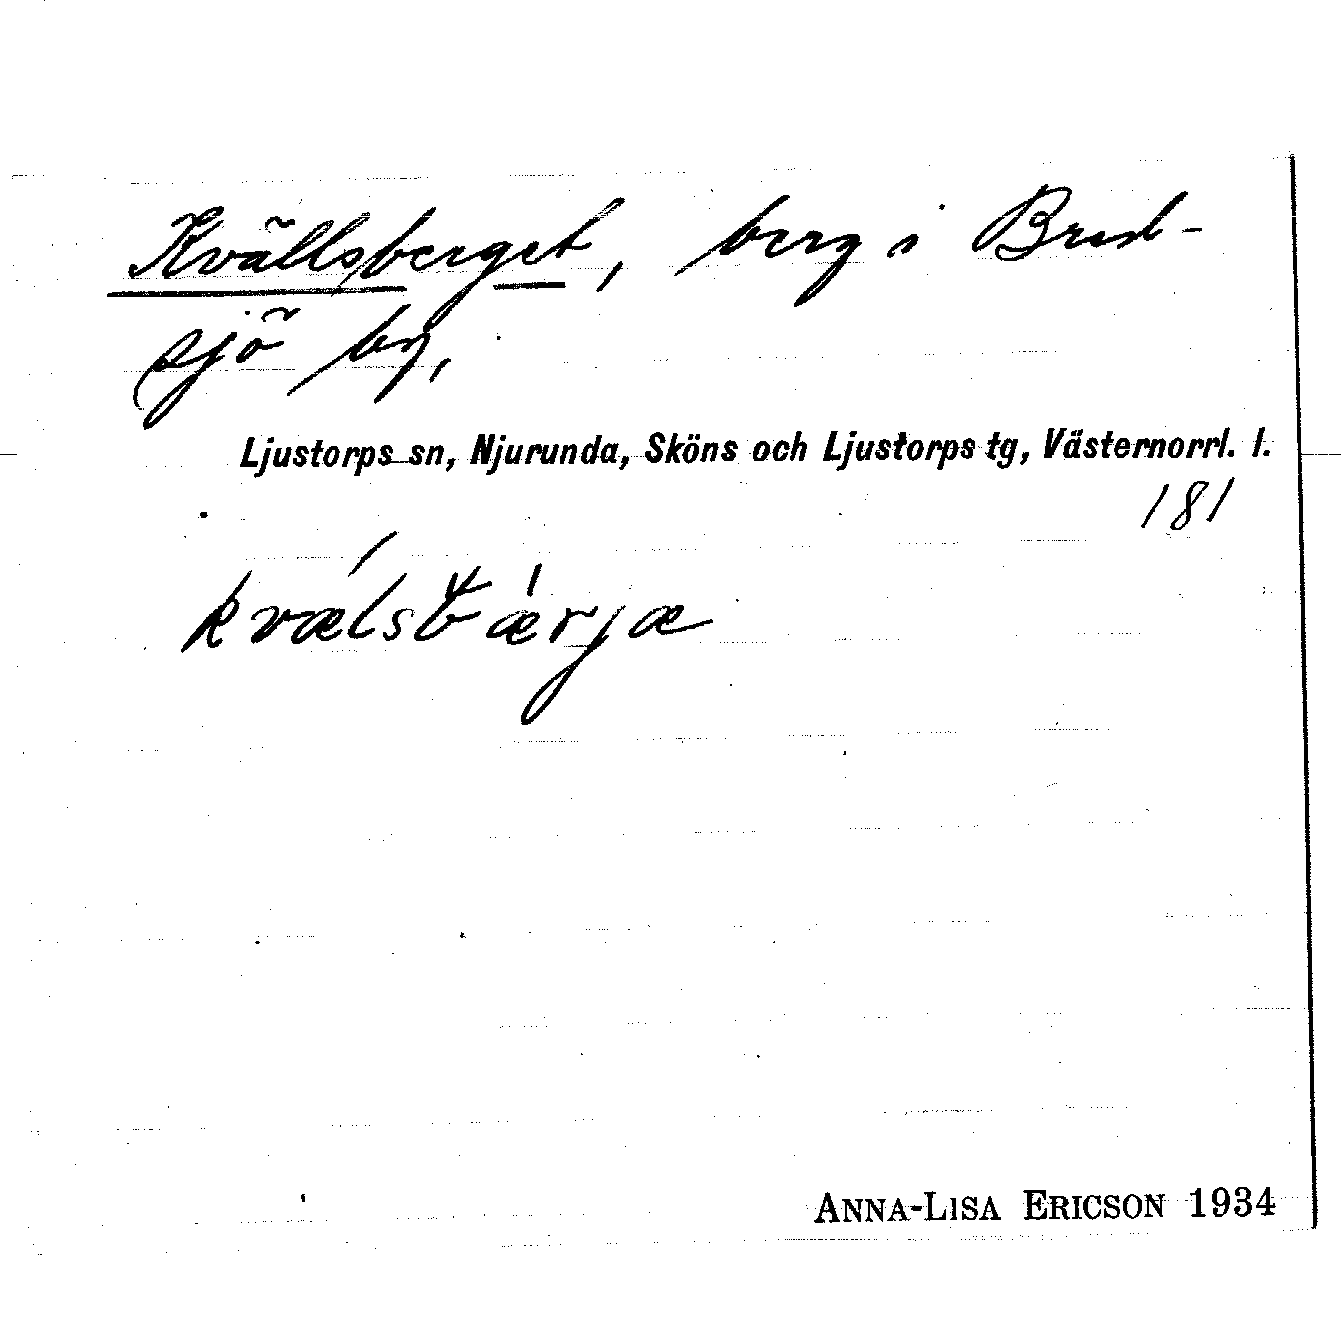 Kvällsberget, berg i Bred-
sjö by,
Ljustorps sn, Njurunda, Sköns och Ljustorps tg, Västernorrl. l.
181
kvælsbærjæ
ANNA-LISA ERICSON 1934